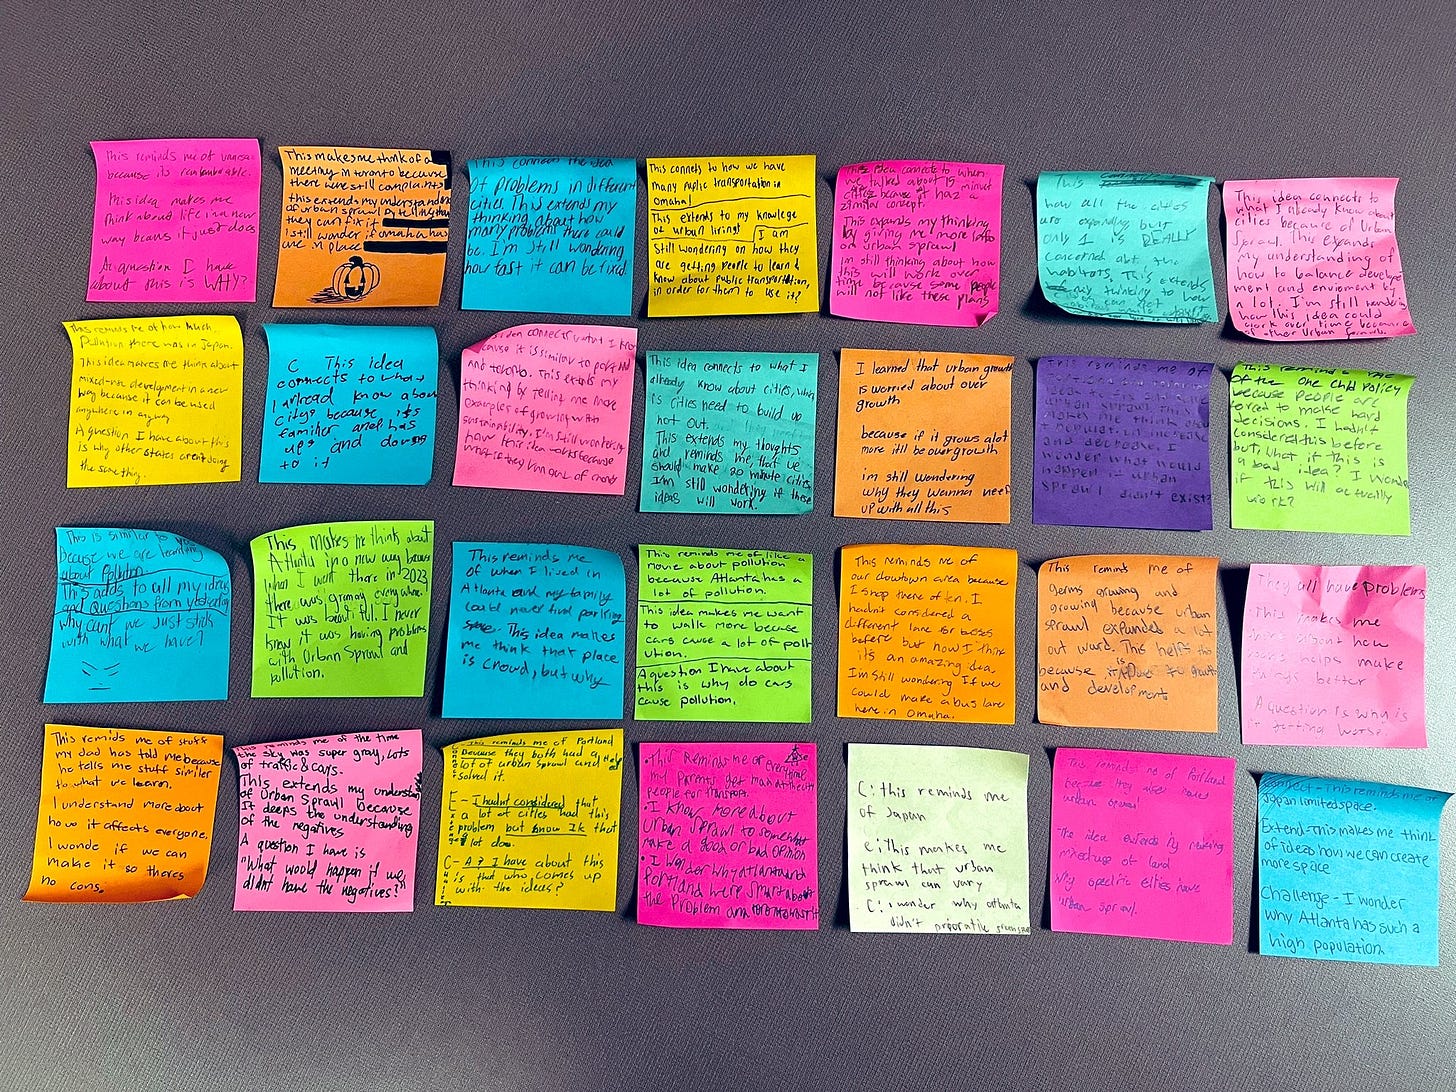 This reminds me of
because its remembable.
This idea makes me
think about life in a new
way becaus it just does
A question I have
about this is WHY?
This makes me think of a
meeting in toronto because
there were still complaints
this extends my understanding
of urban sprawl by telling that
they can fix it
i still wonder if omaha has
one in place
This connects the idea
of problems in different
cities. This extends my
thinking about how
many problems there could
be. I'm still wondering
how fast it can be fixed.
This connets to how we have
many puplic transportation in
Omaha!
This extends to my knowlege
of urban living! I am
still wondering on how they
are getting people to learn &
know about public transportation,
in order for them to use it?
This idea connects to when
we talked about 15 minut
cities because it haz a
zimilar concept
This expands my thinking
by giving me more info
on urban sprawl
im still thinking about how
this will work over
time because some people
will not like these plans
This
how all the cities
are expanding but
only 1 is REALLY
concerned abt the
habitats. This extends
my thinking to how
This idea connects to
what I already know about
cities because of Urban
Sprawl. This expands
my understanding of
how to balance develop
ment and enviorment by
a lot. I'm still wondering
how this idea could
work over time because
of other Urban Sprawls.
This reminds me of how much
Pollution there was in Japan.
This idea makes me think about
mixed-use development in a new
way because it can be used
anywhere in anyway
A question I have about this
is why other states aren't doing
the same thing.
C This idea
connects to what
I alread know about
citys because its
familier and has
ups and downs
to it
idea connects what I know
cause it is similar to portland
and toronto. This extends my
thinking by telling me more
examples of growing with
sustainability. I'm still wondering
how this idea works because
what if they run out of money
This idea connects to what I
already know about cities, which
is cities need to build up
not out.
This extends my thoughts
and reminds me, that we
should make 20 minute cities
I'm still wondering if these
ideas will work.
I learned that urban growth
is worried about over
growth
because if it grows alot
more itll be overgrowth
im still wondering
why they wanna keep
up with all this
This reminds me of
urban sprawl. This
makes me think about
population increase
and decrease. I
wonder what would
happen if urban
sprawl didn't exist?
This reminds me
of the one child Policy
because people are
forced to make hard
decisions. I hadn't
considered this before
but, what if this is
a bad idea? I wonder
if this will actually
work?
This is similar to
becuase we are learning
about Pollution
This adds to all my ideas
and questions from yesterday
why cant we just stick
with what we have?
This makes me think about
Atlanta in a new way because
when I went there in 2023
there was grammy everywhere.
It was beautiful. I never
knew it was having problems
with Urban Sprawl and
pollution.
This reminds me
of when I lived in
Atlanta and my family
could never find parking
space. This idea makes
me think that place
is crowd, but why
This reminds me of like a
movie about pollution
because Atlanta has a
lot of pollution.
This idea makes me want
to walk more becuse
cars cause a lot of poll
ution.
A question I have about
this is why do cars
cause pollution.
This reminds me of
our downtown area because
I shop there often. I
hadn't considered a
different lane for buses
before but now I think
it's an amazing idea.
I'm Still wondering if we
could make a bus lane
here in Omaha.
This remind me of
Germs growing and
growing because urban
sprawl expanded a lot
out ward. This helps this
because it is
and development
They all have problems
This makes me
think about how
helps make
things better
A Question is why is
it getting worse.
This remids me of stuff
my dad has told me because
he tells me stuff similer
to what we learn.
I understand more about
how it affects everyone.
I wonde if we can
make it so theres
no cons.
This reminds me of the time
the sky was super gray, lots
of traffic & cars.
This extends my understanding
of Urban Sprawl because
It deeps the understanding
of the negatives
A question I have is
"What would happen if we
didnt have the negatives?"
This reminds me of Portland
Because they both had a
lot of urban sprawl and
solved it.
E - I hadn't considered that
a lot of cities had this
problem but know Ik that
lot do.
C - A ? I have about this
is that who comes up
with the ideas?
• This Reminds me of everytime
my Parents get mad at the
people for transport.
• I know more about
Urban Sprawl to somewhat
make a good or bad opinion
• I wonder why atlanta and
Portland were smart about
the Problem and
C: this reminds me
of Japan
E: This makes me
think that urban
sprawl can vary
C: I wonder why atlanta
didn't prioratile
This reminds me of Portland
becuse they also have
urban sprawl
The idea extends by making
mixeduse of land
Why specific cities have
urban sprawl.
Connect - This reminds me of
Japan limited space.
Extend - This makes me think
of ideas how we can create
more space
Challenge - I wonder
why Atlanta has such a
high population.